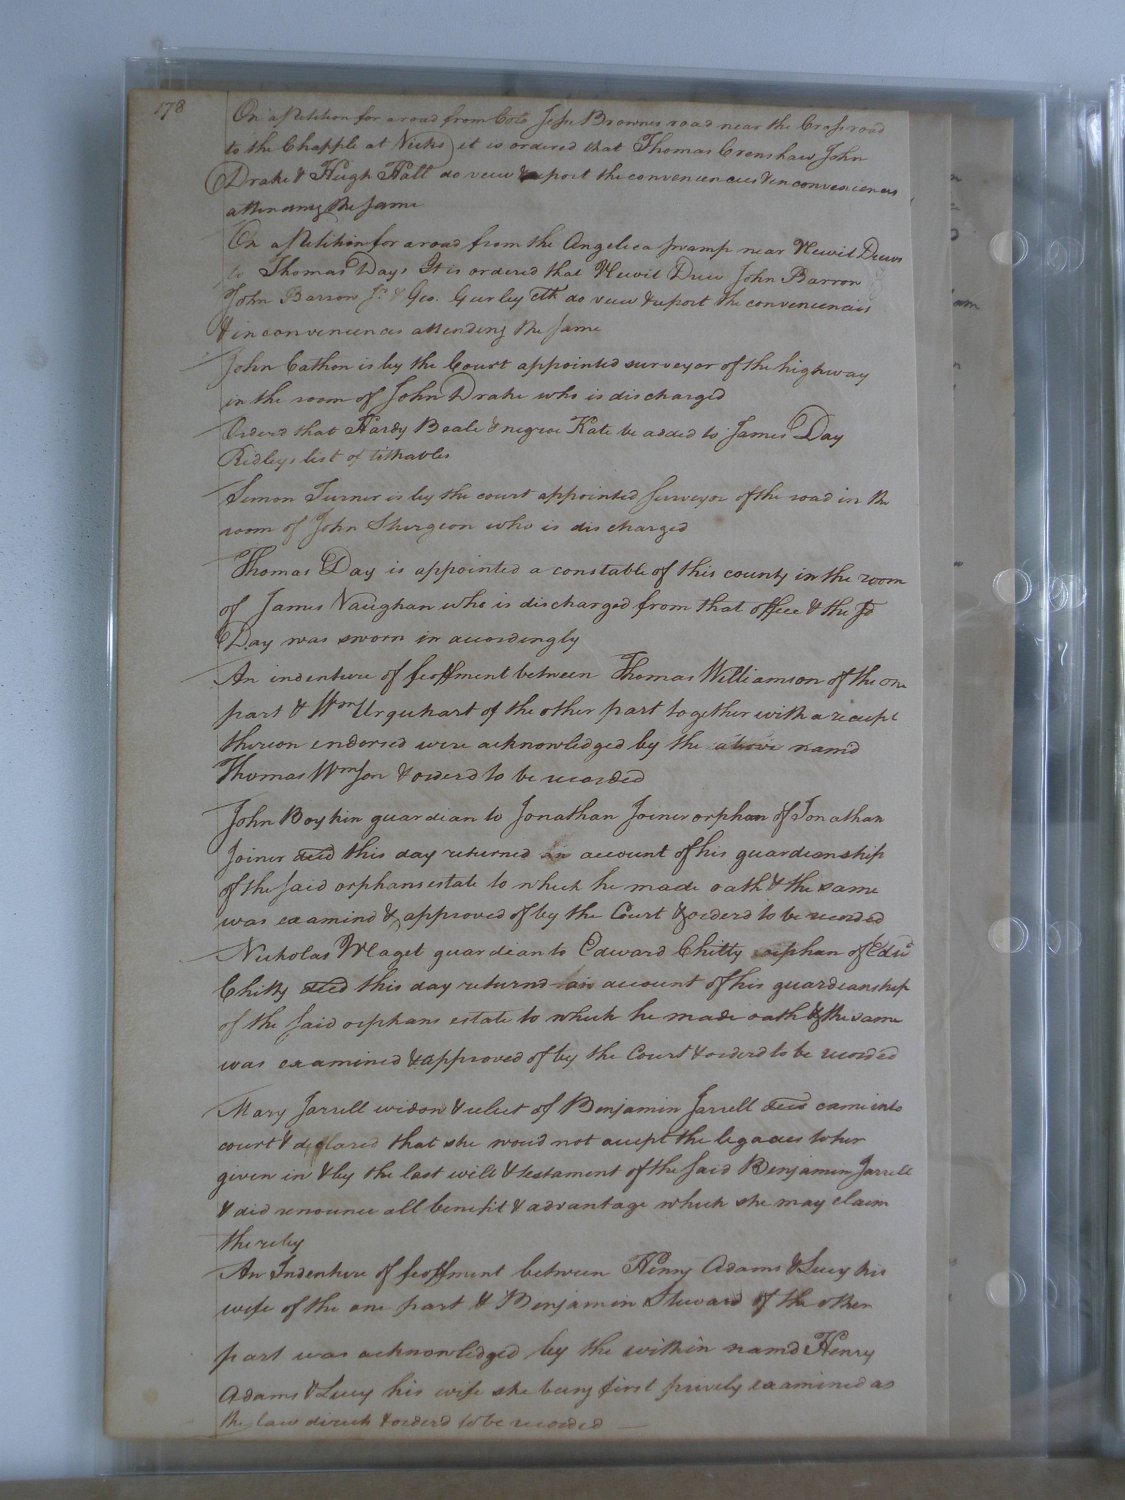 178
On a Petition for a road from Colo Jesse Brownes road near the Crossroad
to the Chapple at Nicks it is ordered that Thomas Crenshaw John
Drake & Hugh Hall do veiw & report the conveniencies & inconveniences
attending the same
On a Petition for a road from the Angelica swamp near Newit Drews
to Thomas Days It is ordered that Newit Drew John Barron
John Barrow Jr & Geo. Gurley do veiw & report the conveniencies
& inconveniences attending the same
John Cathon is by the Court appointed surveyor of the highway
in the room of John Drake who is discharged
Orderd that Hardy Beale & negroe Kate be added to James Day
Ridleys list of tithables
Simon Turner is by the court appointed surveyor of the road in the
room of John Sturgeon who is discharged
Thomas Day is appointed a constable of this county in the room
of James Vaughan who is discharged from that office & the sd
Day was sworn in accordingly
An indenture of feoffment between Thomas Williamson of the one
part & Wm Urquhart of the other part together with a receipt
thereon endorsed were acknowledged by the above namd
Thomas Wmson & orderd to be recorded
John Boykin guardian to Jonathan Joiner orphan of Jonathan
Joiner decd this day returned an account of his guardianship
of the said orphans estate to which he made oath & the same
was examind & approved of by the Court & orderd to be recorded
Nicholas Maget guardian to Edward Chitty orphan of Edwd
Chitty decd this day returnd an account of his guardianship
of the said orphans estate to which he made oath & the same
was examined & approved of by the Court & orderd to be recorded
Mary Jarrell widow & relict of Benjamin Jarrell decd came into
court & declared that she woud not accept the legacies to her
given in & by the last will & testament of the said Benjamin Jarrell
& did renounce all benefit & advantage which she may claim
thereby
An Indenture of feoffment between Henry Adams & Lucy his
wife of the one part & Benjamin Steward of the other
part was acknowledged by the within namd Henry
Adams & Lucy his wife she being first prively examined as
the law directs & orderd to be recorded —